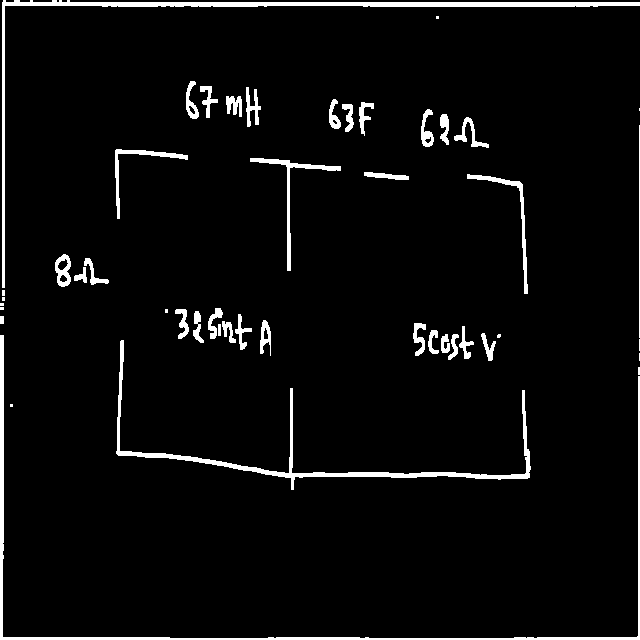 67 mH
63F
62Ω
8Ω
32sint A
5cost V